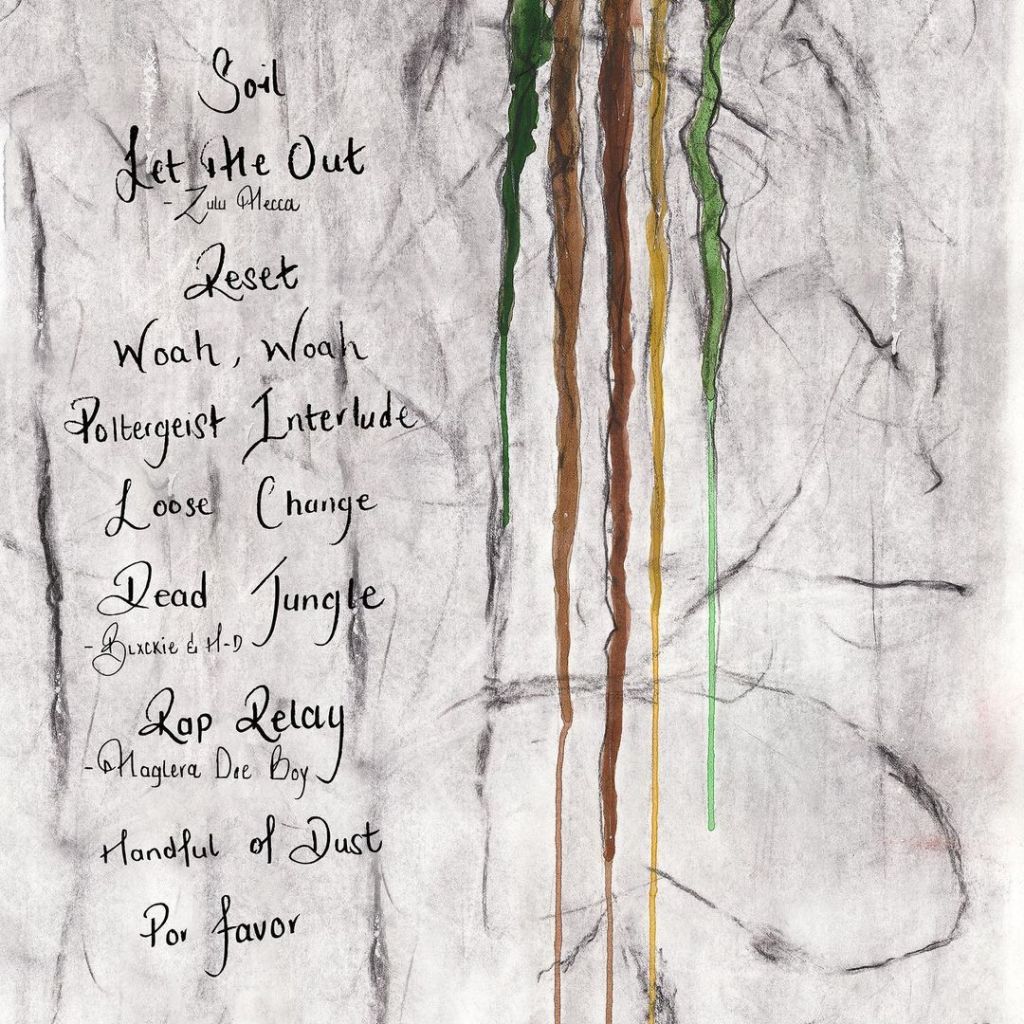 Soil
Let Me Out
- Zulu Mecca
Reset
Woah, Woah
Poltergeist Interlude
Loose Change
Dead Jungle
- Blxckie & H-D
Rap Relay
- Maglera Doe Boy
Handful of Dust
Por favor